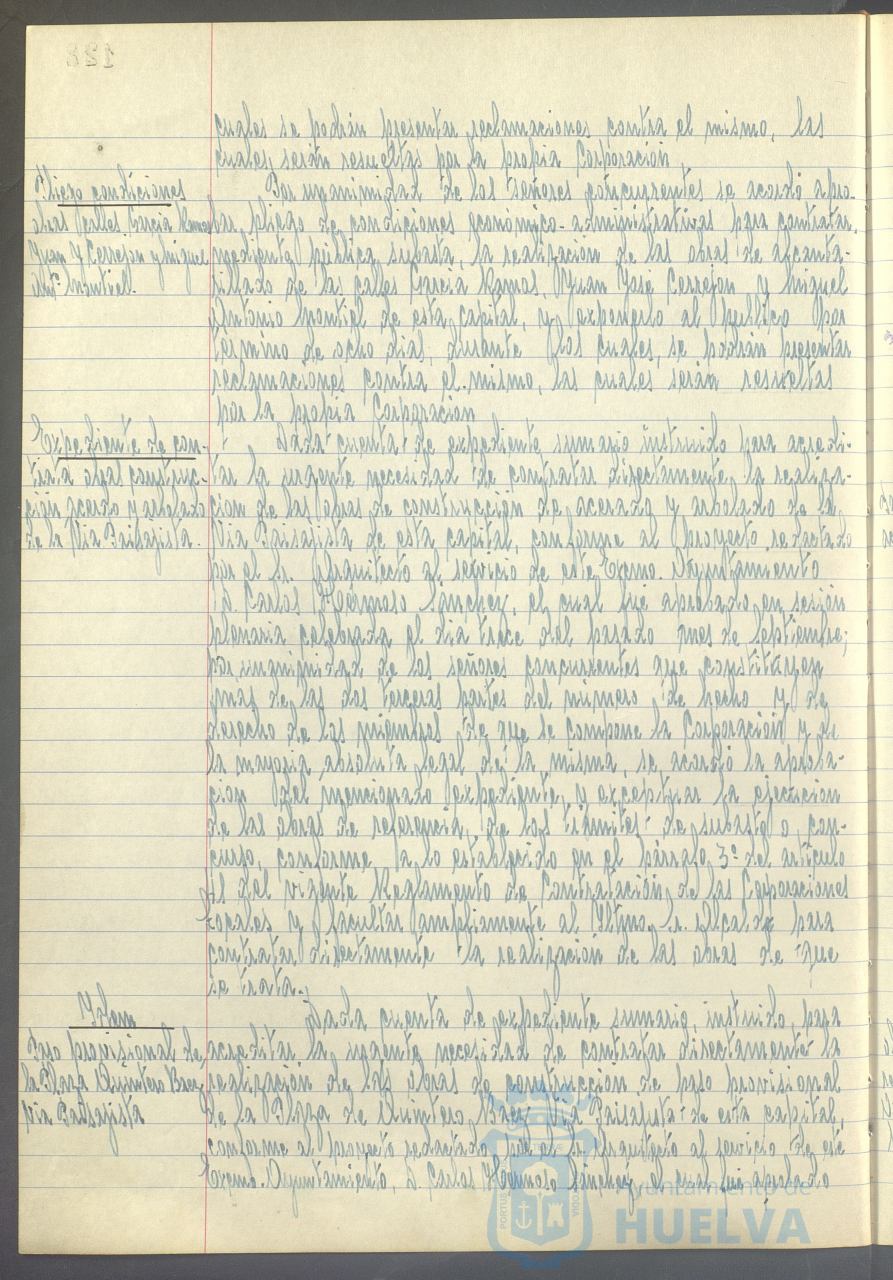 cuales se podrán presentar reclamaciones contra el mismo, las
cuales serán resueltas por la propia Corporación.
Pliego condiciones
obras calles García Ramos
Juan J. Cerrejon y Miguel
Antº Montiel.
Por unanimidad de los señores concurrentes se acordó apro-
bar pliego de condiciones económico-administrativas para contratar,
mediante pública subasta, la realización de las obras de alcanta-
rillado de las calles García Ramos, Juan José Cerrejon y Miguel
Antonio Montiel de esta capital, y exponerlo al público por
término de ocho días, durante los cuales, se podrán presentar
reclamaciones contra el mismo, las cuales serán resueltas
por la propia Corporación
Expediente de con-
trata obras construc-
ción acerado y arbolado
de la Vía Paisajista.
Dada cuenta de expediente sumario instruido para acredi-
tar la urgente necesidad de contratar directamente la realiza-
ción de las obras de construcción de acerado y arbolado de la
Vía Paisajista de esta capital, conforme al proyecto redactado
por el Sr. Arquitecto al servicio de este Excmo. Ayuntamiento
D. Carlos Hermoso Sánchez, el cual fue aprobado en sesión
plenaria celebrada el día trece del pasado mes de Septiembre;
por unanimidad de los señores concurrentes que constituyen
mas de las dos terceras partes del número de hecho y de
derecho de los miembros de que se compone la Corporación y de
la mayoría absoluta legal de la misma, se acordó la aproba-
ción del mencionado expediente, y exceptuar la ejecución
de las obras de referencia, de los trámites de subasta o con-
curso, conforme a lo establecido en el párrafo 3º del artículo
del vigente Reglamento de Contratación de las Corporaciones
Locales y facultar ampliamente al Iltmo. Sr. Alcalde para
contratar directamente la realización de las obras de que
se trata.
Idem
Paso provisional de
la Plaza Quintero Baez
Vía Paisajista
Dada cuenta de expediente sumario, instruido, para
acreditar la urgente necesidad de contratar directamente la
realización de las obras de construcción de paso provisional
de la Plaza de Quintero Baez Vía Paisajista de esta capital,
conforme al proyecto redactado por el Sr. Arquitecto al servicio de este
Excmo. Ayuntamiento, D. Carlos Hermoso Sánchez, el cual fue aprobado
Ayuntamiento de
HUELVA